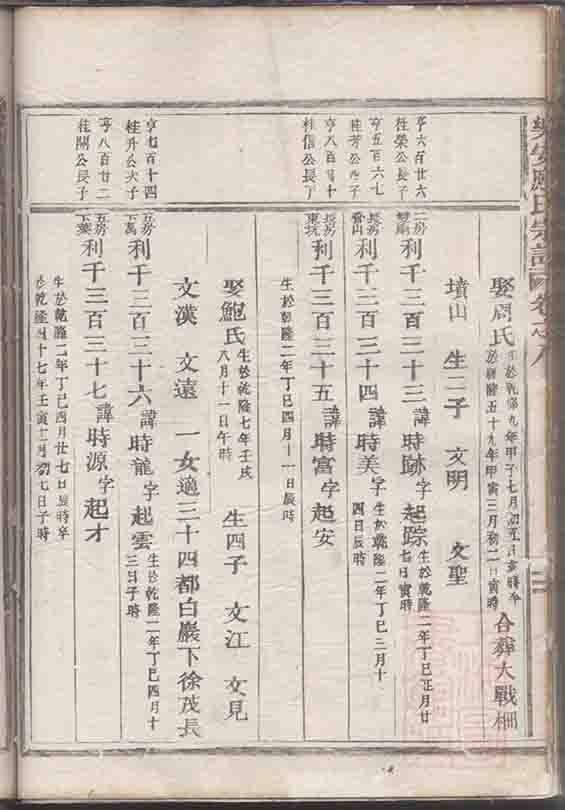 宗譜 卷之八
娶周氏 生於乾隆九年甲子七月初五日亥時卒
於乾隆五十九年甲寅三月初二日寅時 合葬大戰柵
墳山 生二子 文明 文聖
亨六百廿六
桂榮公長子
二房
利千三百三十三 諱時跡 字起踪 生於乾隆二年丁巳正月廿
七日寅時
亨五百六七
桂芳公 子
長房
利千三百三十四 諱時美 字 生於乾隆二年丁巳三月十
四日辰時
亨八百 十
桂信公長子
長房
東坑
利千三百三十五 諱時富 字起安
生於乾隆二年丁巳四月十一日辰時
娶鮑氏 生於乾隆七年壬戌
八月十一日午時 生四子 文江 文見
文漢 文遠 一女適三十四都白巖下徐茂長
亨七百十四
桂升公次子
五房
下萬
利千三百三十六 諱時龍 字起雲 生於乾隆二年丁巳四月十
三日子時
亨八百廿二
桂開公長子
五房
下葉
利千三百三十七 諱時源 字起才
生於乾隆二年丁巳四月廿七日辰時卒
於乾隆四十七年壬寅十二月初七日子時